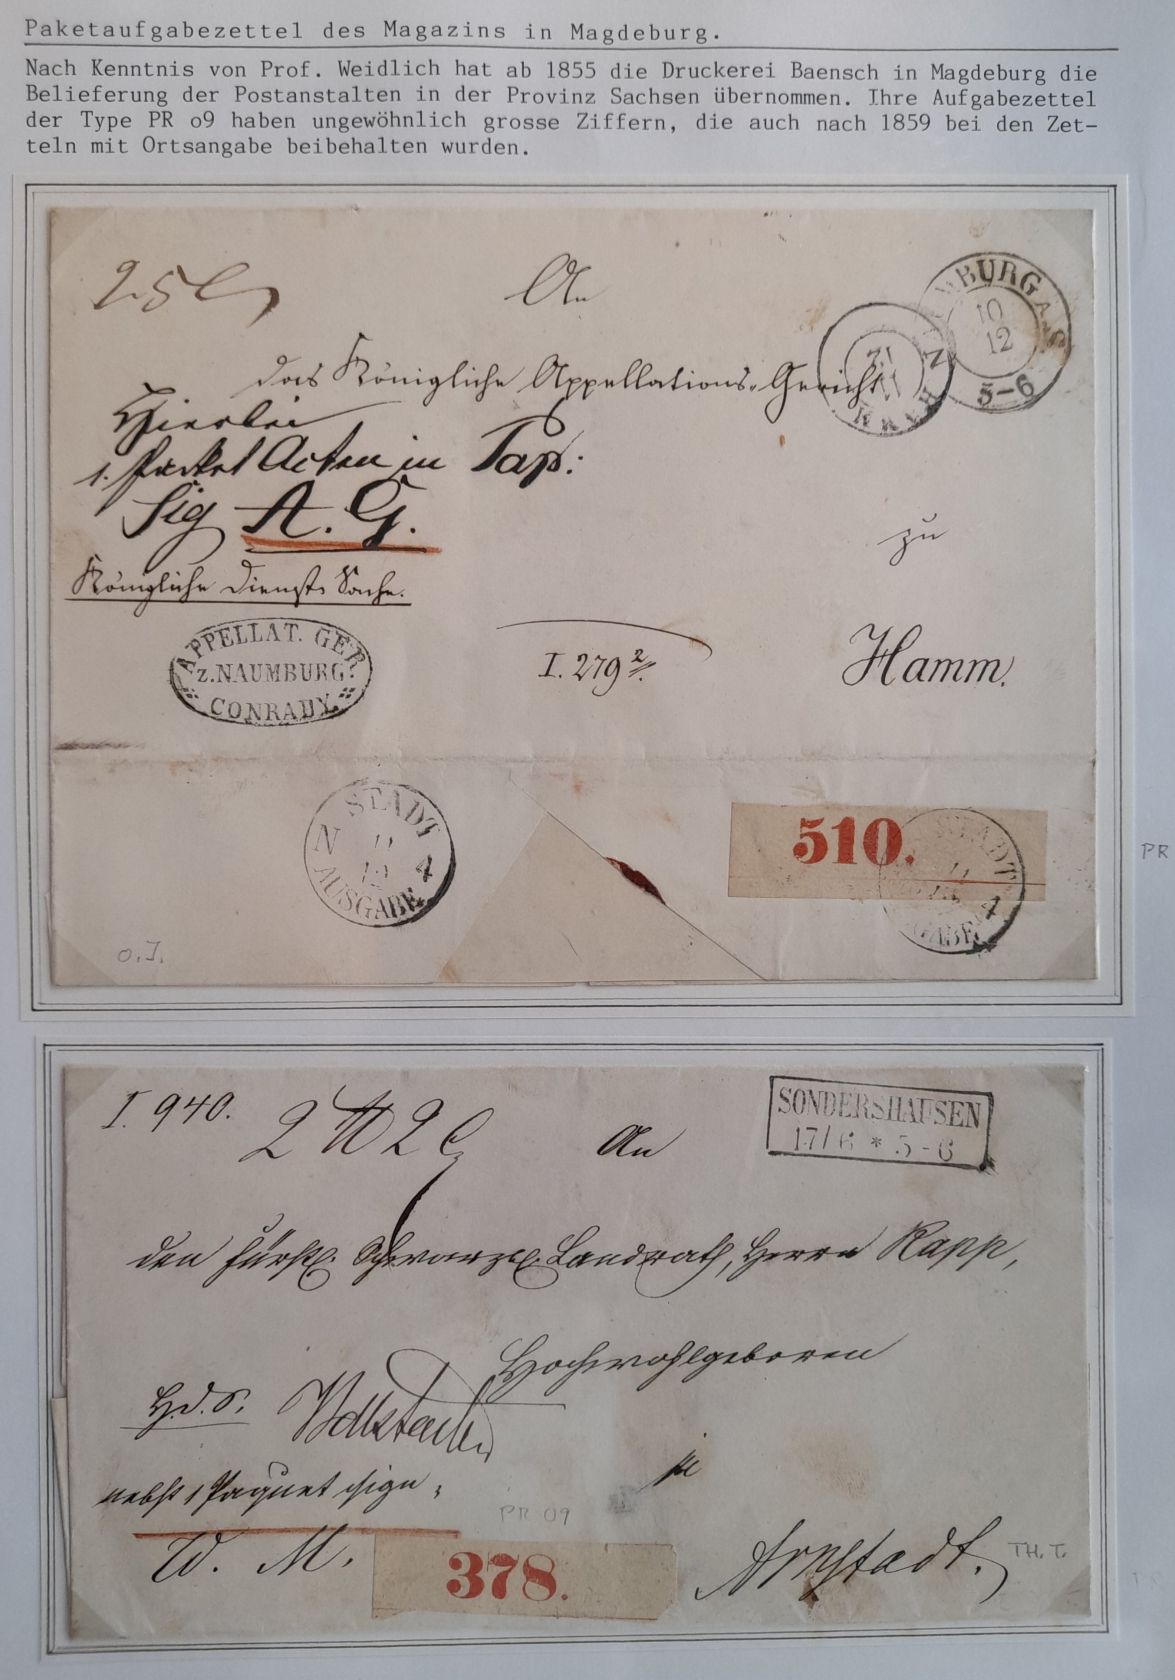 Paketaufgabezettel des Magazins in Magdeburg.
Nach Kenntnis von Prof. Weidlich hat ab 1855 die Druckerei Baensch in Magdeburg die
Belieferung der Postanstalten in der Provinz Sachsen übernommen. Ihre Aufgabezettel
der Type PR o9 haben ungewöhnlich grosse Ziffern, die auch nach 1859 bei den Zet-
teln mit Ortsangabe beibehalten wurden.
An
NAUMBURG A.S.
10
12
5-6
HAMM
das Königliche Appellations-Gericht
Hierbei
1. Packet Acten in Pap:
Sig A. G.
zu
Königliche Dienst Sache.
APPELLAT. GER.
z. NAUMBURG.
CONRADY.
I. 279
Hamm.
STADT
N 11 4
12
AUSGABE
510.
STADT
11
4
PR
o.J.
I. 940.
SONDERSHAUSEN
17/6 * 5-6
An
den Fürstl. Schwarzb. Landrath, Herrn Rapp,
Hochwohlgeboren
H.d.S.
nebst 1 Paquet sign.
PR 09
W. M.
378.
Arnstadt.
TH.T.